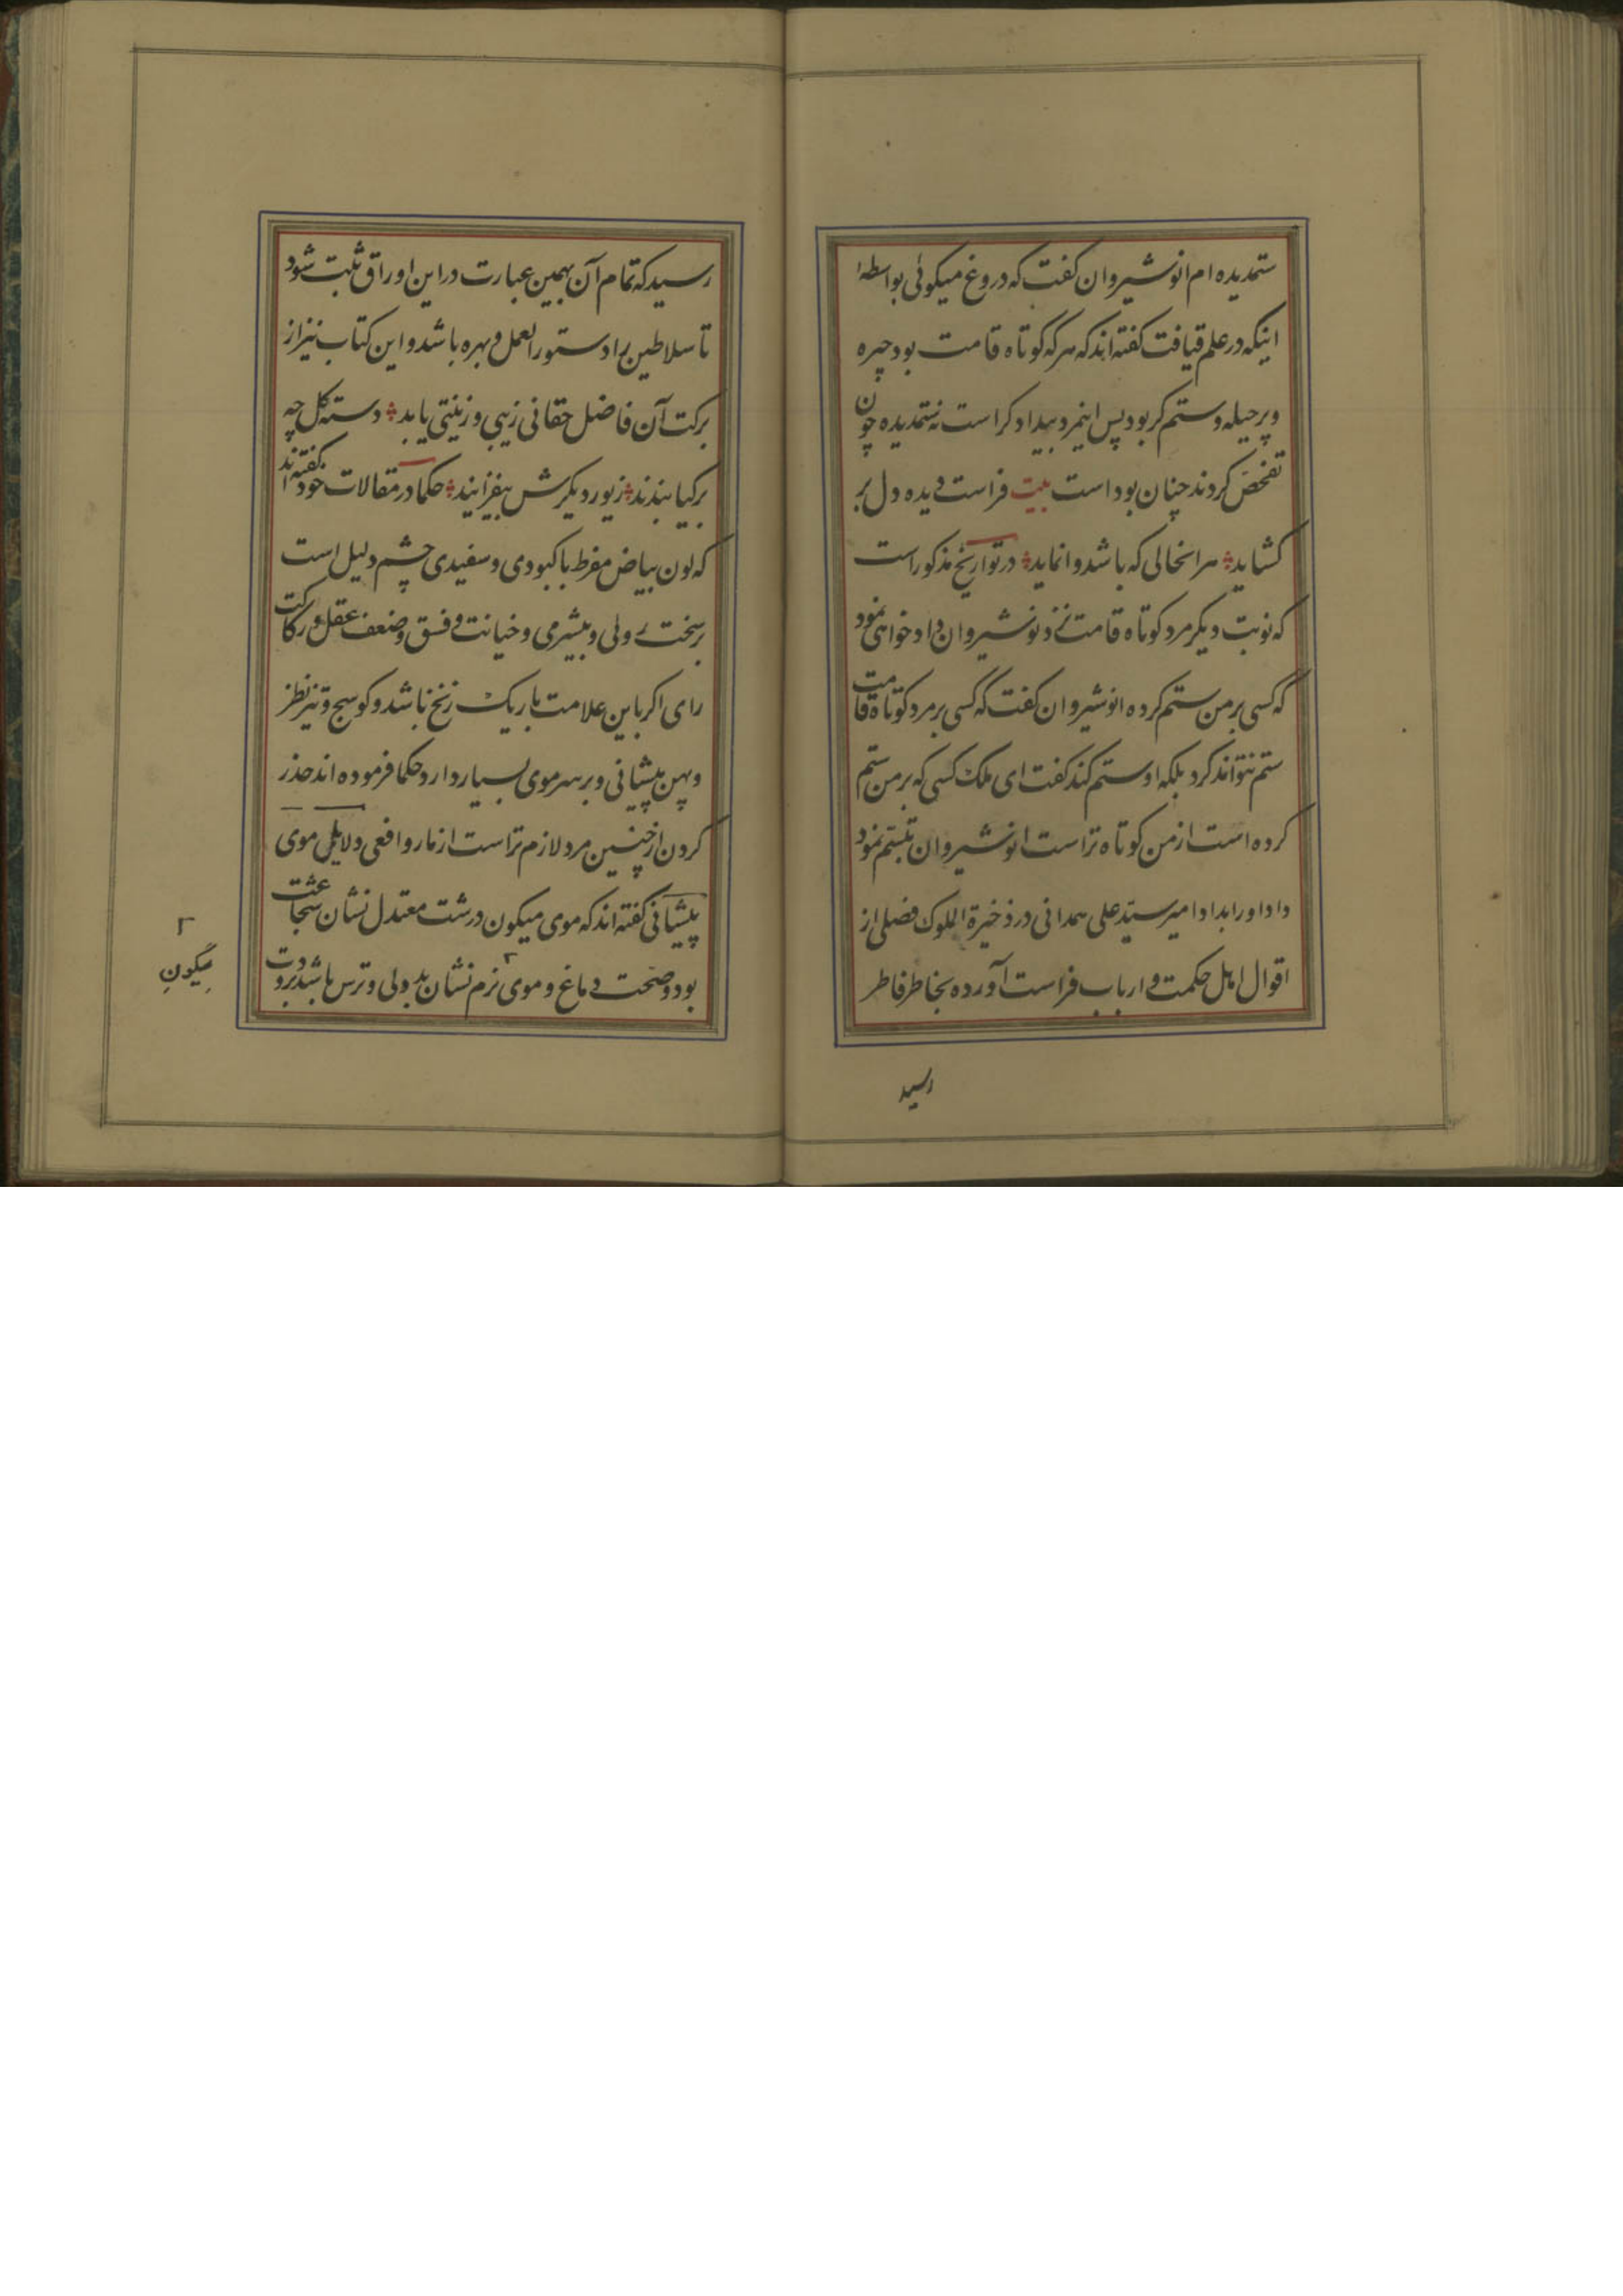 ستمدیده ام انوشیروان کفت که دروغ میکوئی بواسطهٔ
اینکه در علم قیافت کفته اند که هر که کوتاه قامت بود چیره
و پر حیله و ستم کر بود پس اینمرد بیدادکر است نه ستمدیده چون
تفحص کردند چنان بود است بیت فراست دیده دل بر
کشاید ؞ هر انحالی که باشد وانماید ؞ در تواریخ مذکور است
که نوبت دیکر مرد کوتاه قامت نزد نوشیروان داد خواهی نمود
که کسی بر من ستم کرده انوشیروان کفت که کسی بر مرد کوتاه قامت
ستم نتواند کرد بلکه او ستم کند کفت ای ملک کسی که بر من ستم
کرده است از من کوتاه تر است انوشیروان تبسم نمود
داد او را بداد امیر سید علی همدانی در ذخیرة الملوک فصلی از
اقوال اهل حکمت و ارباب فراست آورده بخاطر فاطر
رسید
رسید که تمام آن بهمین عبارت در این اوراق ثبت شود
تا سلاطین را دستور العمل و بهره باشد و این کتاب نیز از
برکت آن فاضل حقانی زیبی و زینتی یابد ؞ دسته کل چه
بر کیا بندند ؞ زیور دیکرش بیفزایند ؞ حکما در مقالات خود کفته اند
که لون بیاض مفرط با کبودی و سفیدی چشم دلیل است
بر سخت روئی و بیشرمی و خیانت و فسق و ضعف عقل و رکاکت
رای اکر باین علامت باریک زنخ باشد و کوسج و تیز نظر
و پهن پیشانی و بر سر موی بسیار دارد حکما فرموده اند حذر
کردن از چنین مرد لازم تر است از مار و افعی دلایل موی
پیشانی کفته اند که موی میکون درشت معتدل نشان شجاعت
بود و صحت دماغ و موی نرم نشان بد دلی و ترس باشد برودت
میگون